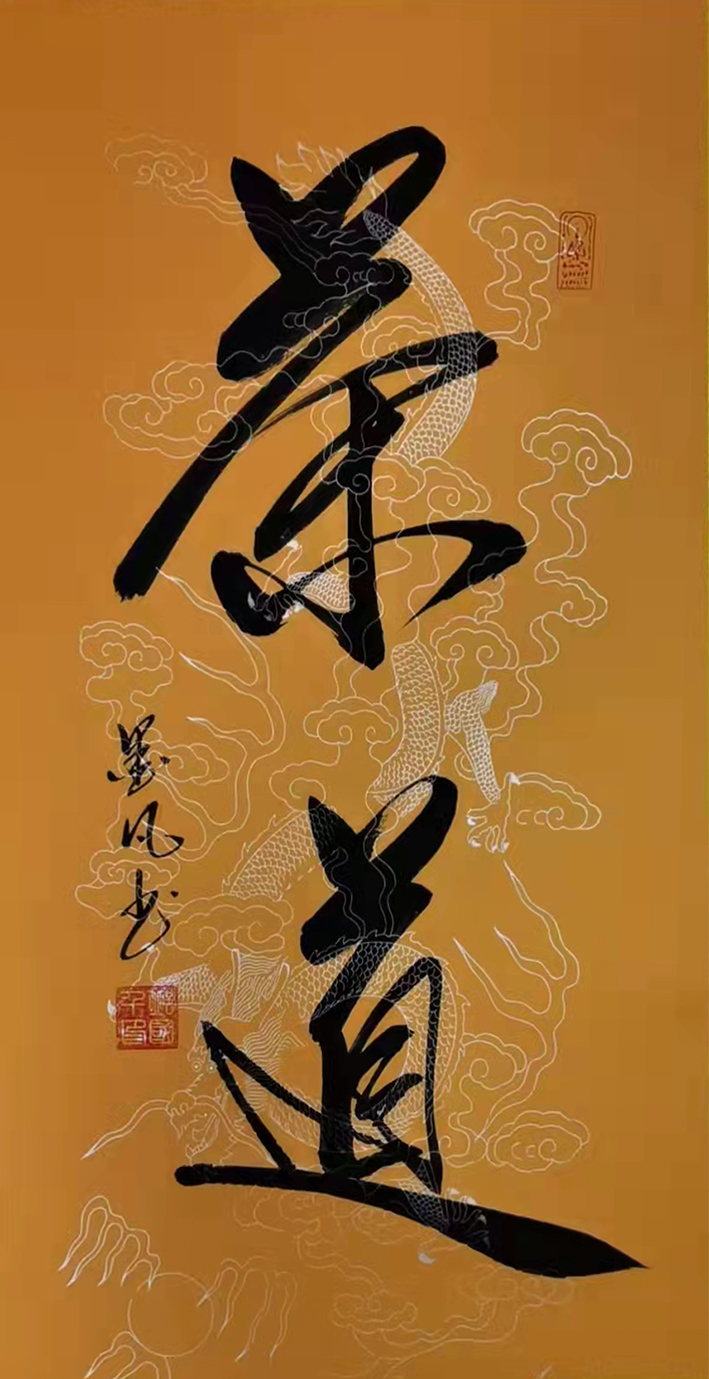 茶道
墨凡书